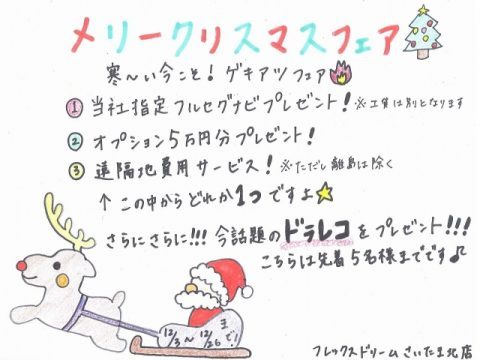 メリークリスマスフェア
寒〜い今こそ！ゲキアツフェア
① 当社指定フルセグナビプレゼント！※工賃は別となります
② オプション5万円分プレゼント！
③ 遠隔地費用サービス！※ただし離島は除く
↑この中からどれか1つですよ☆
さらにさらに!!! 今話題のドラレコをプレゼント!!!
こちらは先着5名様までです♪
12/3〜12/26まで！
フレックスドリームさいたま北店